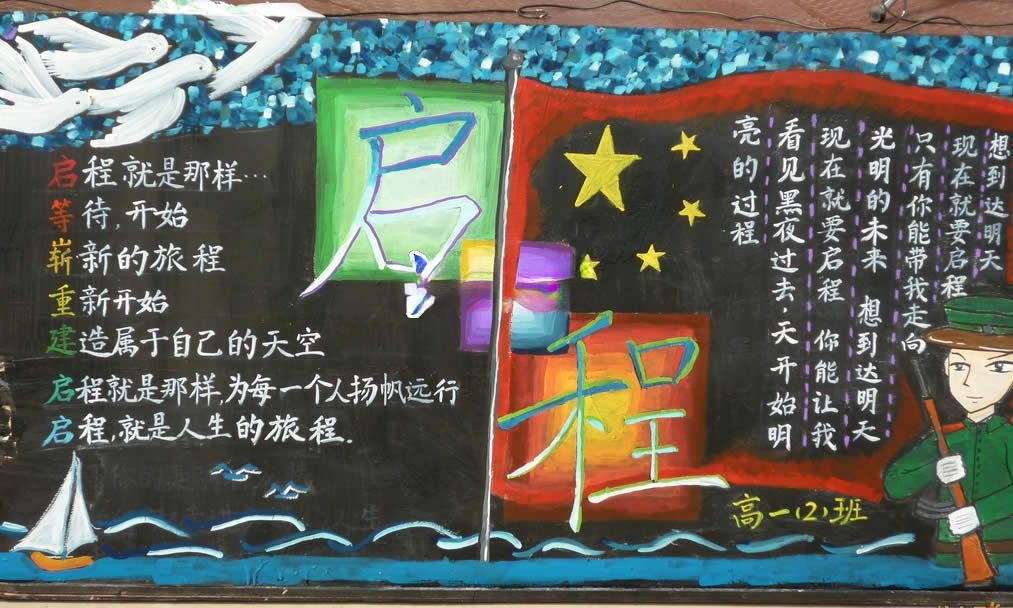 启程就是那样…
等待,开始
崭新的旅程
重新开始
建造属于自己的天空
启程就是那样,为每一个人扬帆远行
启程,就是人生的旅程.
启程
想到达明天
现在就要启程
只有你能带我走向
光明的未来 想到达明天
现在就要启程 你能让我
看见黑夜过去,天开始明
亮的过程
高一(2)班